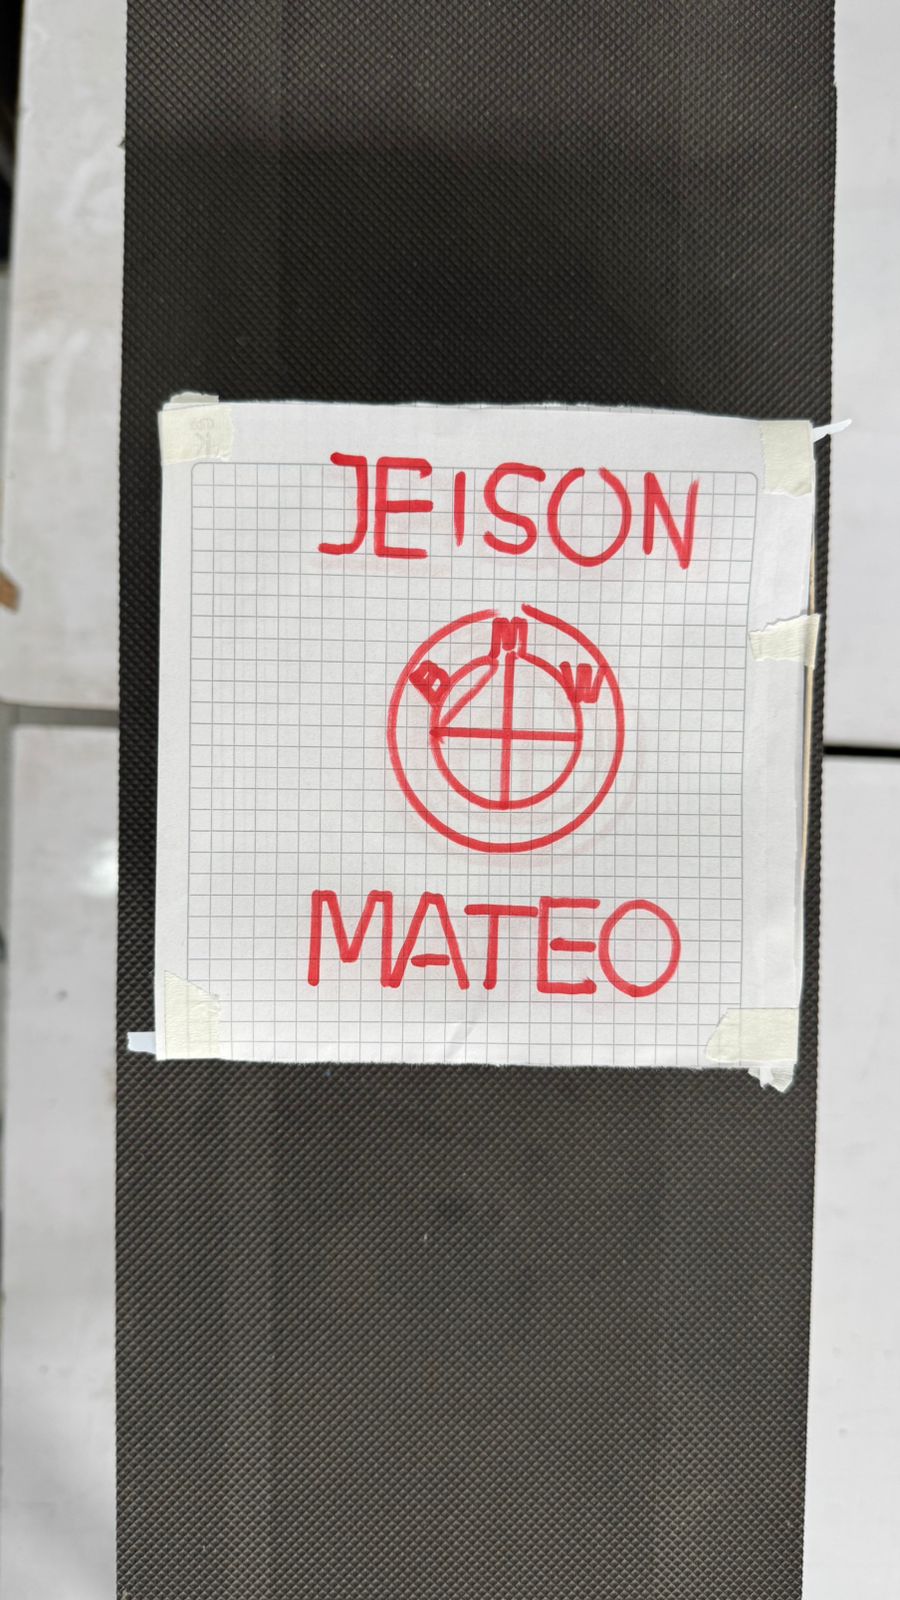 JEISON
BMW
MATEO